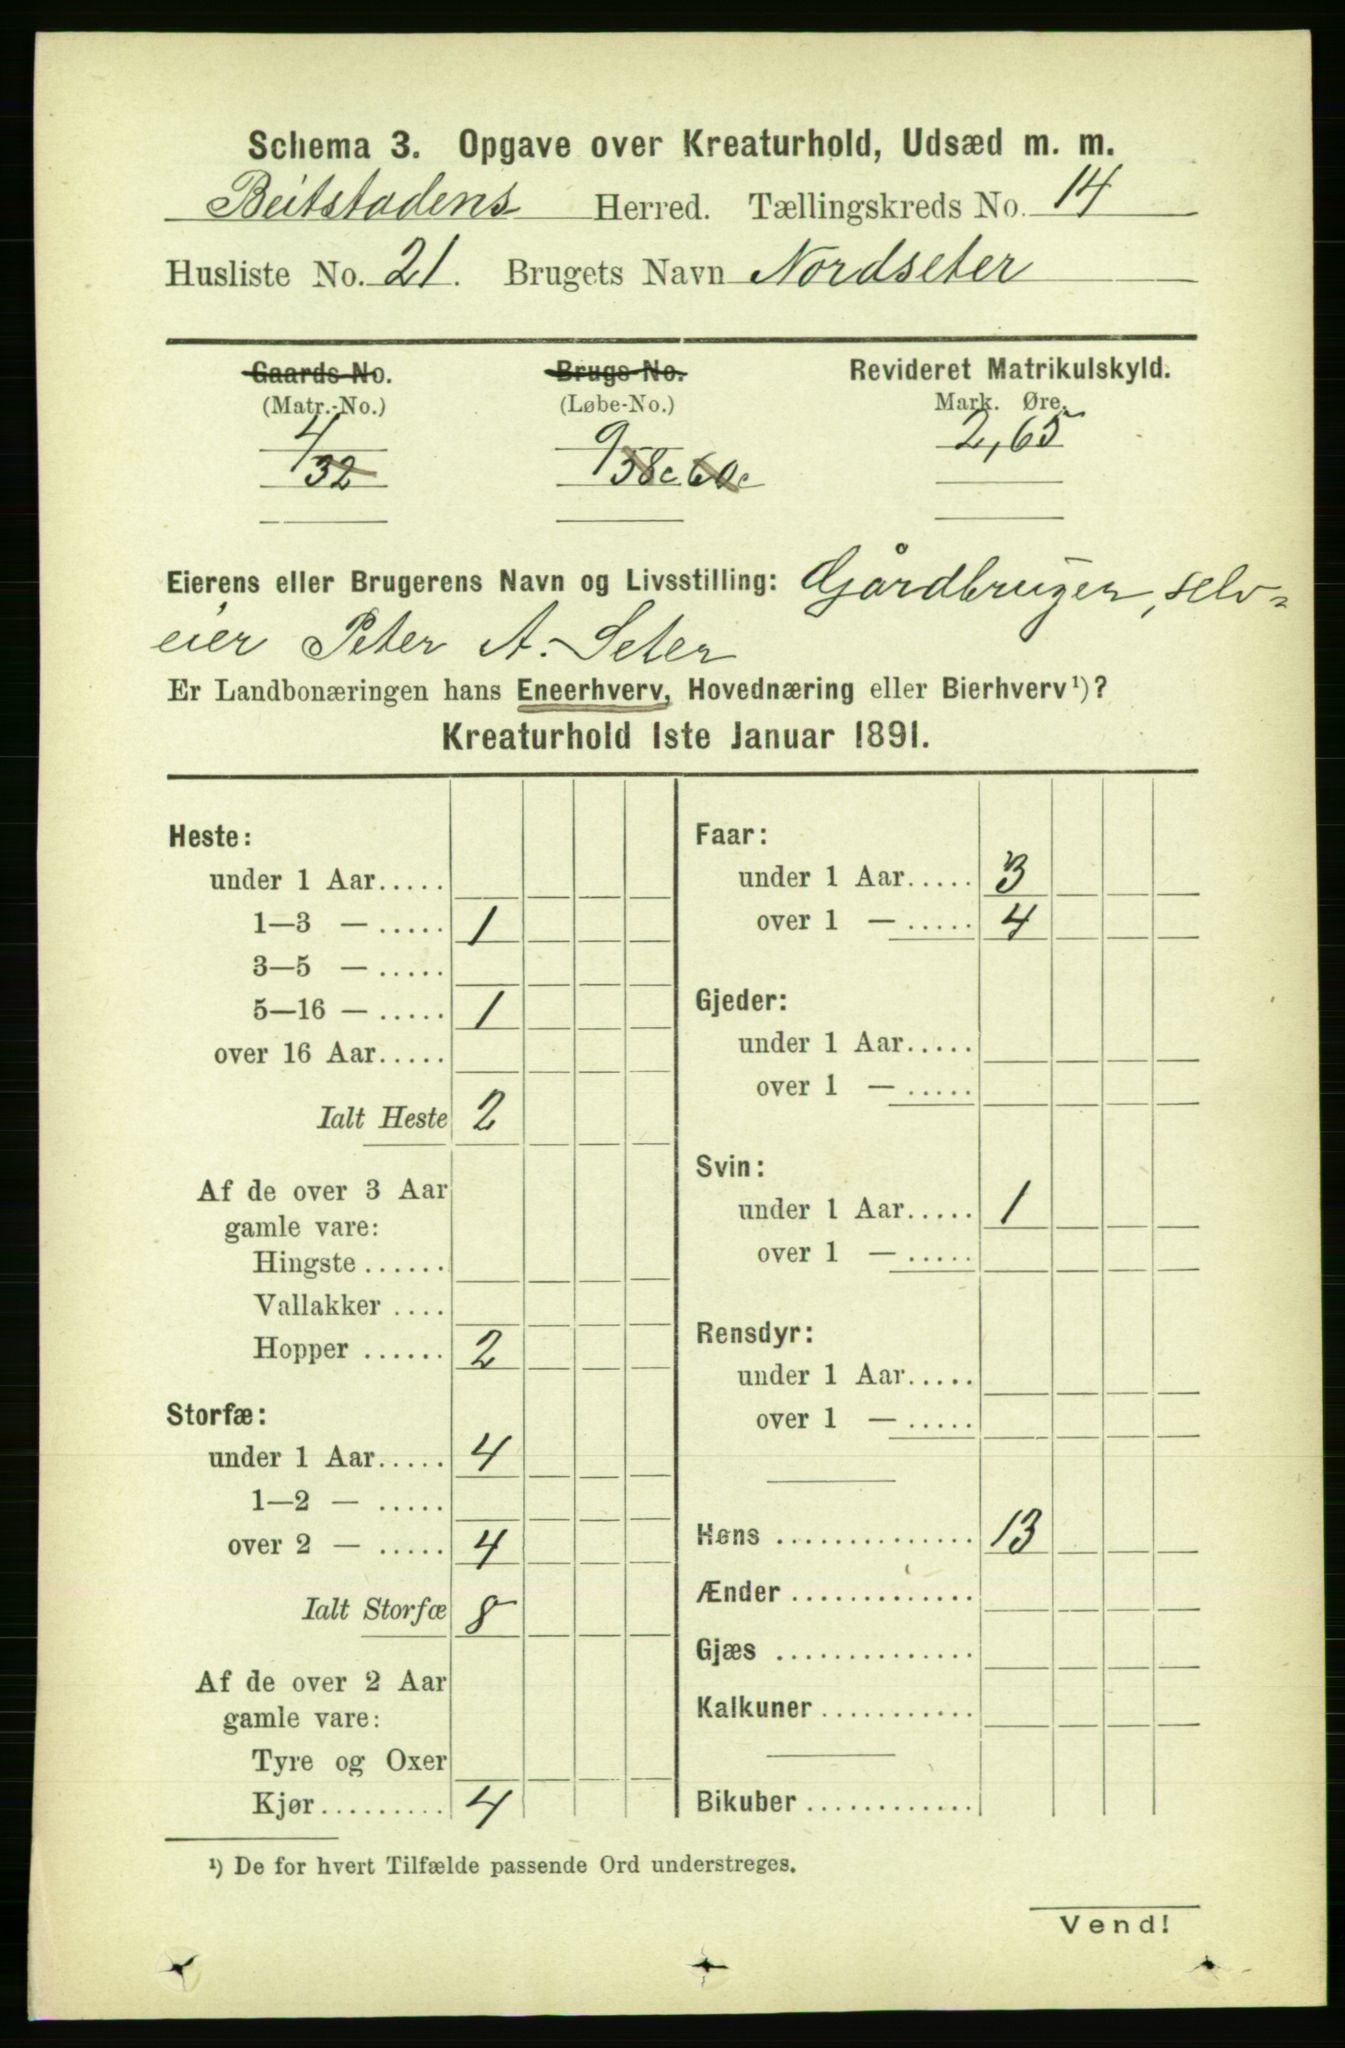 Schema 3. Opgave over Kreaturhold, Udsæd m. m.
Beitstadens Herred. Tællingskreds No. 14
Husliste No. 21. Brugets Navn Nordseter
Gaards-No. Brugs-No. Revideret Matrikulskyld.
(Matr.-No.) (Løbe-No.) Mark. Øre.
4 9 2,65
32 58c 60c
Eierens eller Brugerens Navn og Livsstilling: Gjårdbruger, selv-
eier Peter A. Seter
Er Landbonæringen hans Eneerhverv, Hovednæring eller Bierhverv¹)?
Kreaturhold 1ste Januar 1891.
Heste:
under 1 Aar.....
1—3 — ..... 1
3—5 — .....
5—16 — ..... 1
over 16 Aar.....
Ialt Heste 2
Af de over 3 Aar
gamle vare:
Hingste ......
Vallakker ....
Hopper ...... 2
Storfæ:
under 1 Aar..... 4
1—2 — .....
over 2 — ..... 4
Ialt Storfæ 8
Af de over 2 Aar
gamle vare:
Tyre og Oxer
Kjør......... 4
Faar:
under 1 Aar..... 3
over 1 — ..... 4
Gjeder:
under 1 Aar.....
over 1 — .....
Svin:
under 1 Aar..... 1
over 1 — .....
Rensdyr:
under 1 Aar.....
over 1 — .....
Høns .............. 13
Ænder .............
Gjæs ..............
Kalkuner ...........
Bikuber ............
¹) De for hvert Tilfælde passende Ord understreges.
Vend!